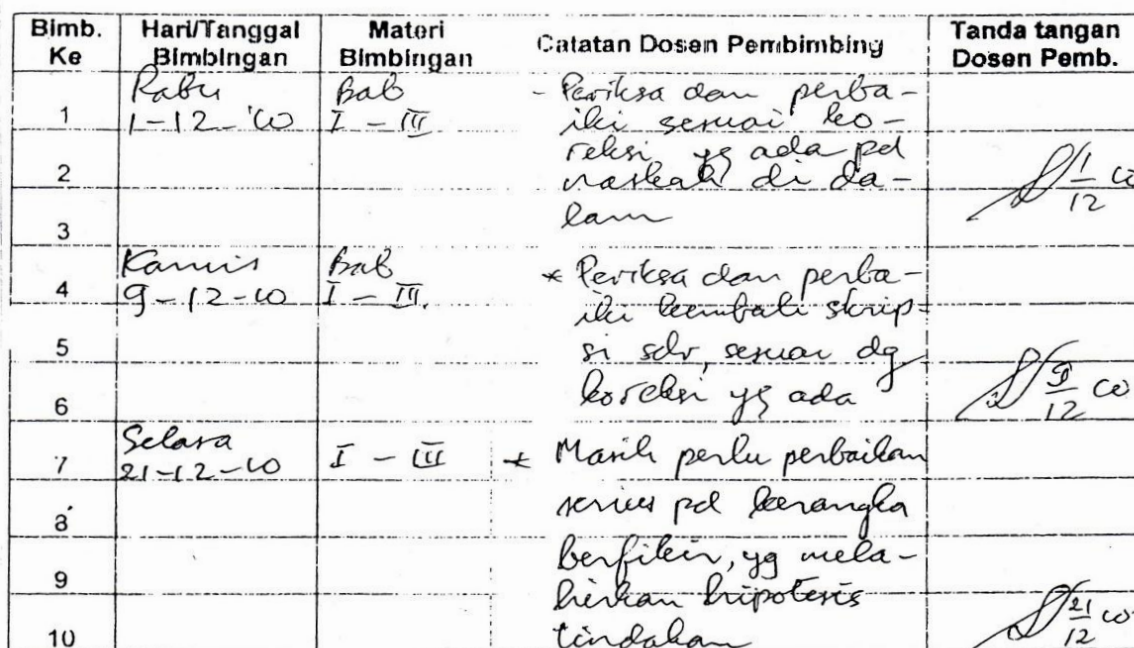 Bimb. Ke Hari/Tanggal Bimbingan Materi Bimbingan Catatan Dosen Pembimbing Tanda tangan Dosen Pemb.
1 Rabu 1-12-'10 Bab I - III - Periksa dan perba-
iki sesuai ko-
reksi yg ada pd
2 naskah di da- 1/12 10
3 lam
4 Kamis 9-12-10 Bab I - III. * Periksa dan perba-
iki kembali skrip-
5 si sdr, sesuai dg
6 koreksi yg ada 9/12 10
7 Selasa 21-12-10 I - III * Masih perlu perbaikan
8 serius pd kerangka
9 berfikir, yg mela-
hirkan hipotesis
10 tindakan 21/12 10